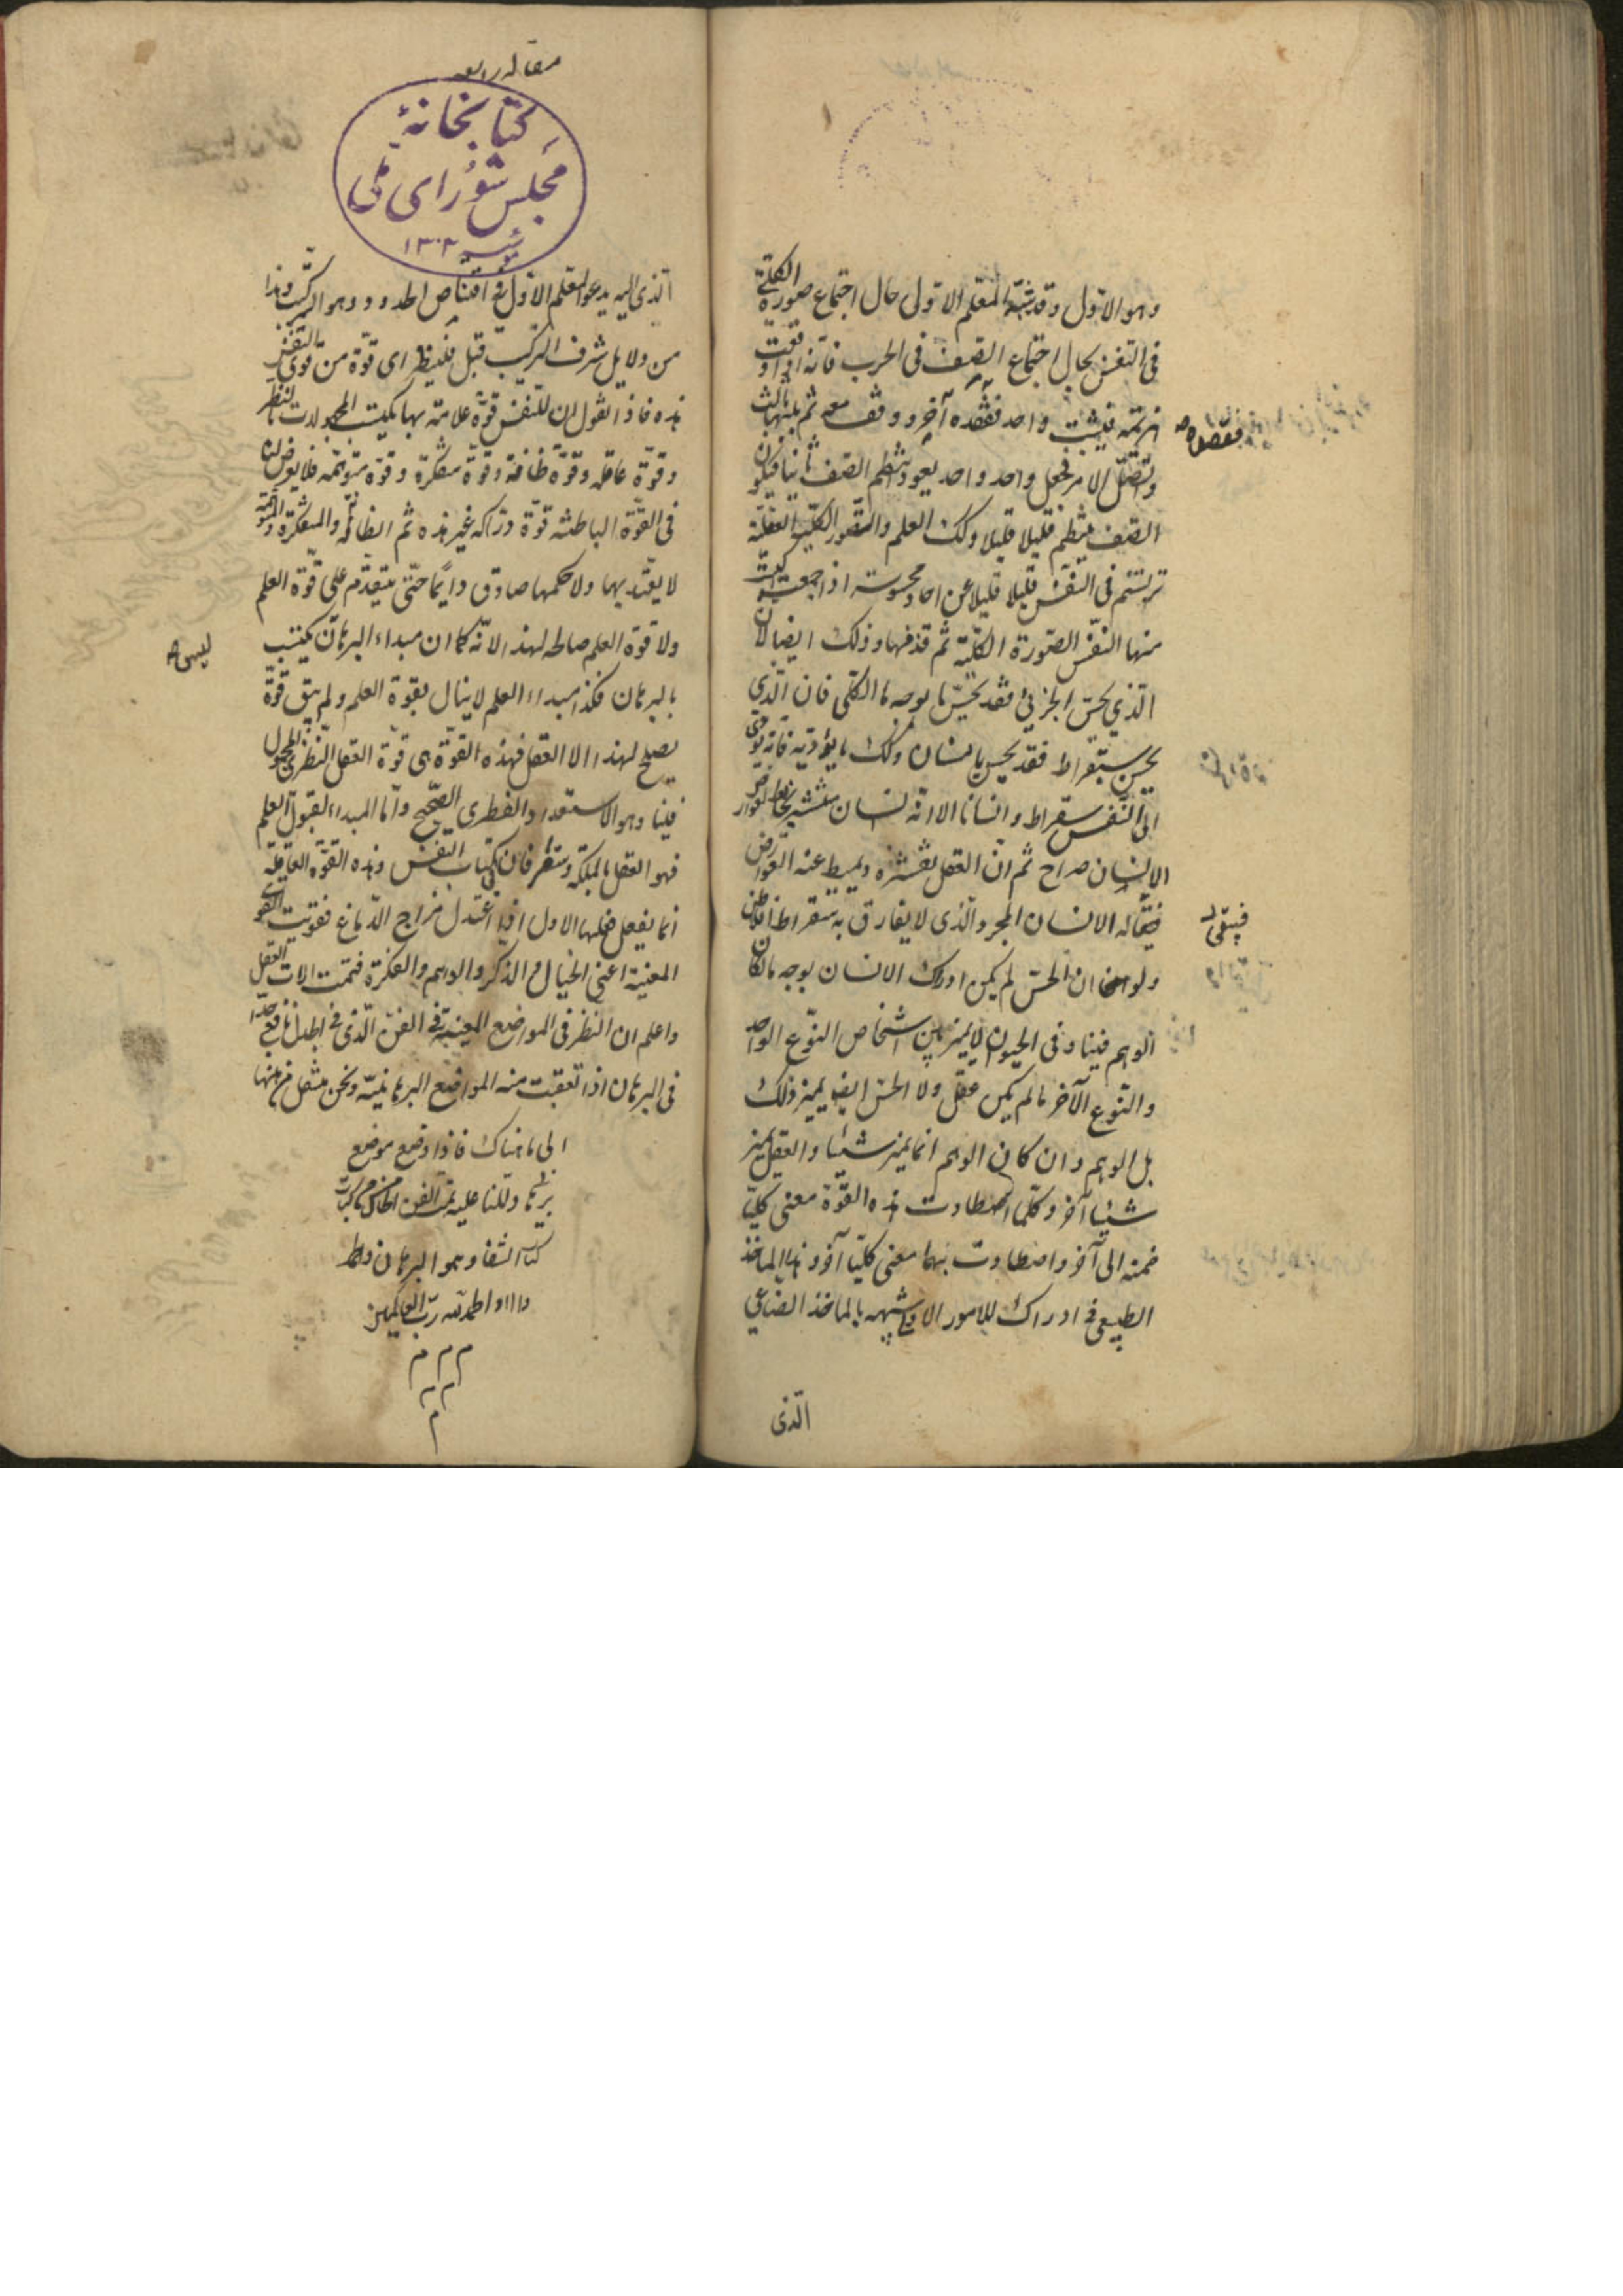 وهو الاول وقد شبه المعلم الاول حال اجتماع صورة الكلى
فى النفس بحال اجتماع الصف فى الحرب فانه اذا وقعت
هزيمة فيثبت واحد فقصده آخر ووقف معه ثم يليهما ثالث
واتصل الامر فجعل واحد واحد يعود انتظم الصف ثانيا فيكون
الصف ينتظم قليلا قليلا وكك العلم والصورة الكلية العقلية
ترتسم فى النفس قليلا قليلا عن احاد محسوسة اذا اجتمعت اكتسبت
منها النفس الصورة الكلية ثم قذفتها وذلك ايضا لان
الذي يحس الجزئي فقد يحس بوجه ما الكلى فان الذي
يحس بسقراط فقد يحس بانسان وكك ما يؤديه فانه يؤدى
الى النفس سقراط وانسانا الا انه انسان منتشر مخالط لعوارض
الانسان صراح ثم ان العقل يقشره ويميط عنه العوارض
فيبقى له الانسان المجرد الذى لا يفارق به سقراط افلاطن
ولو ان الحس لم يكن ادرك الانسان بوجه ما لكان
الوهم فينا وفى الحيوان لا يميز بين اشخاص النوع الواحد
والنوع الآخر ما لم يكن عقل ولا الحس ايضا يميز ذلك
بل الوهم وان كان الوهم انما يميز شيئا والعقل يميز
شيئا آخر وكلما اصطادت هذه القوة معنى كليا
ضمته الى آخر واصطادت بهما معنى كليا آخر وهذا الماخذ
الطبيعى فى ادراك للامور الاولى شبيه بالماخذ الصناعى
الذى
فقصده
فيبقى
مقاله رابعه
كتابخانۀ
مجلس شوراى ملى
١٣٠٢
الذى اليه يدعو المعلم الاول فى اقتناص الحدود وهو التركيب وهذا
من دلايل شرف التركيب قبل فلينظر اى قوة من قوى النفس
هذه فاذا نقول ان للنفس قوة علامة بها يكتسب المجهولات بالنظر
وقوة عاقلة وقوة ظانة وقوة مفكرة وقوة متوهمة فلا يوض
فى القوة الباطنة قوة دراكة غير هذه ثم الظانة والمفكرة والمتوهمة
لا يعتد بها ولا حكمها صادق دايما حتى يتقدم على قوة العلم
ولا قوة العلم صالحة لهذا لانه كما ان مبداء البرهان يكتسب
بالبرهان فكذا مبداء العلم لا ينال بقوة العلم ولم يبق قوة
يصلح لهذا الا العقل فهذه القوة هى قوة العقل النظرى المجعول
فينا وهو الاستعداد الفطرى الصحيح واما المبداء لقبول العلم
فهو العقل بالملكة وستنظر فان كتاب النفس وهذه القوة العاقلة
انما يفعل فعلها الاول اذا اعتدل مزاج الدماغ فقويت القوى
المعينة اعنى الخيال والذكر والوهم والفكرة فتمت الات العقل
واعلم ان النظر فى المواضع المعينة فى الفن الذى فى الجدل نافع جدا
فى البرهان اذا تعقبت منه المواضع البرهانية ونحن منتقل من ههنا
الى ما هناك فاذا وضع موضع
برهانى دللنا عليه تمت الفن الخامس من كتاب
كتاب الشفا وهو البرهان ولله
والحمد لله رب العالمين
م م م
م م
م
ليس